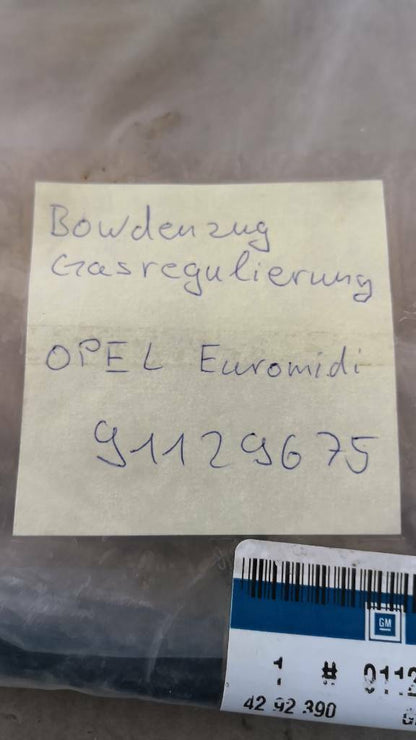 Bowdenzug
Gasregulierung
OPEL Euromidi
91129675
GM
1 #
42 92 390